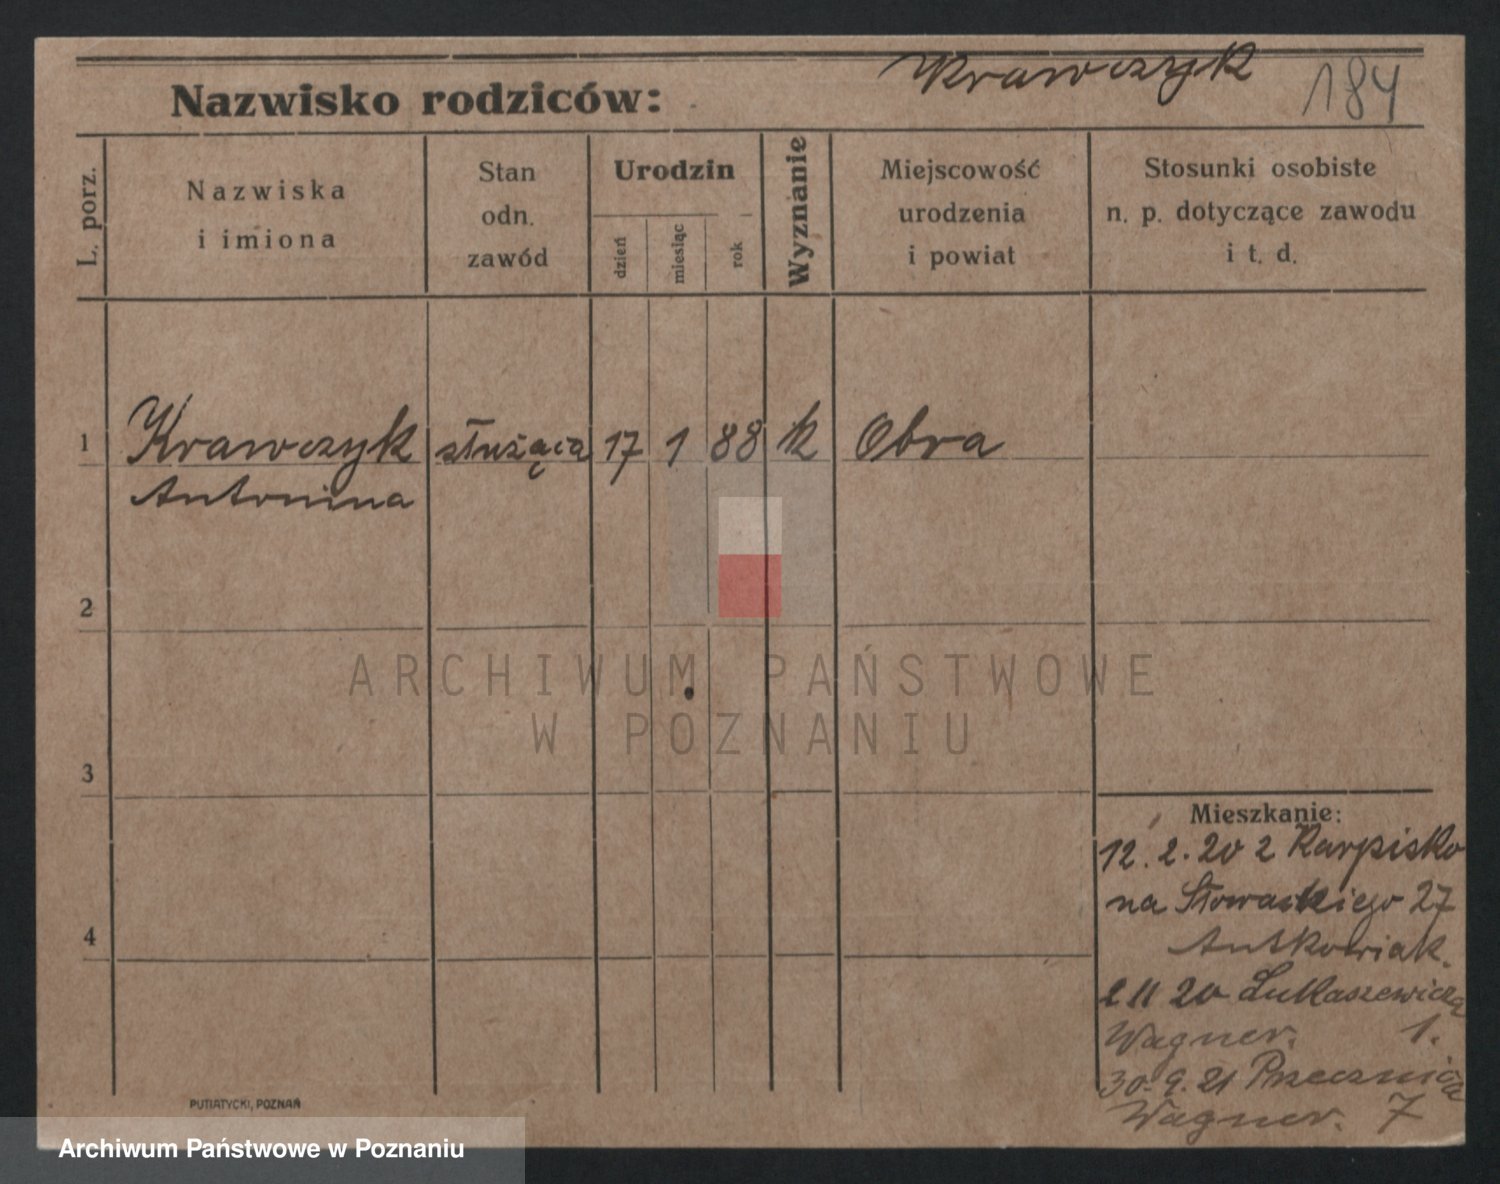 Krawczyk 184
Nazwisko rodziców:
L. porz.
Nazwiska
i imiona
Stan
odn.
zawód
Urodzin
dzień
miesiąc
rok
Wyznanie
Miejscowość
urodzenia
i powiat
Stosunki osobiste
n. p. dotyczące zawodu
i t. d.
1 Krawczyk służąca 17 1 88 k Obra
Antonina
2
ARCHIWUM PAŃSTWOWE
W POZNANIU
3
Mieszkanie:
12. 2. 20 z Karpisko
na Słowackiego 27
4
Antkowiak.
2 11 20 Łukaszewicza
Wagner. 1.
30. 9. 21 Przecznica
Wagner. 7
PUTIATYCKI, POZNAŃ
Archiwum Państwowe w Poznaniu